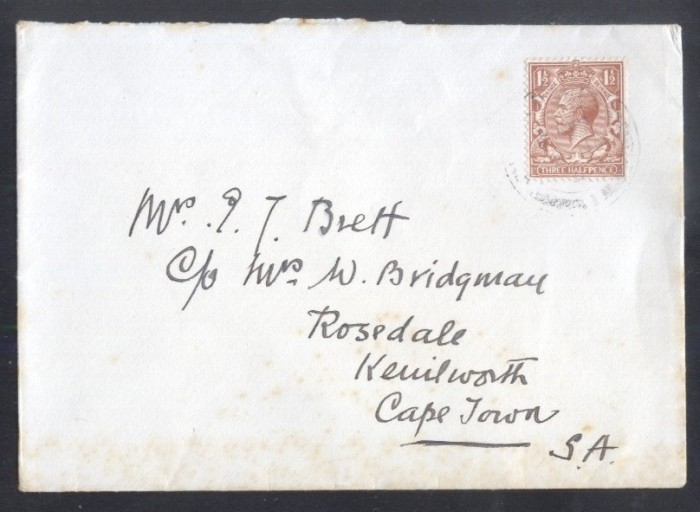 1½ 1½
THREE HALFPENCE
Mrs. P. T. Brett
C/o Mrs. W. Bridgman
Rosedale
Kenilworth
Cape Town
S.A.